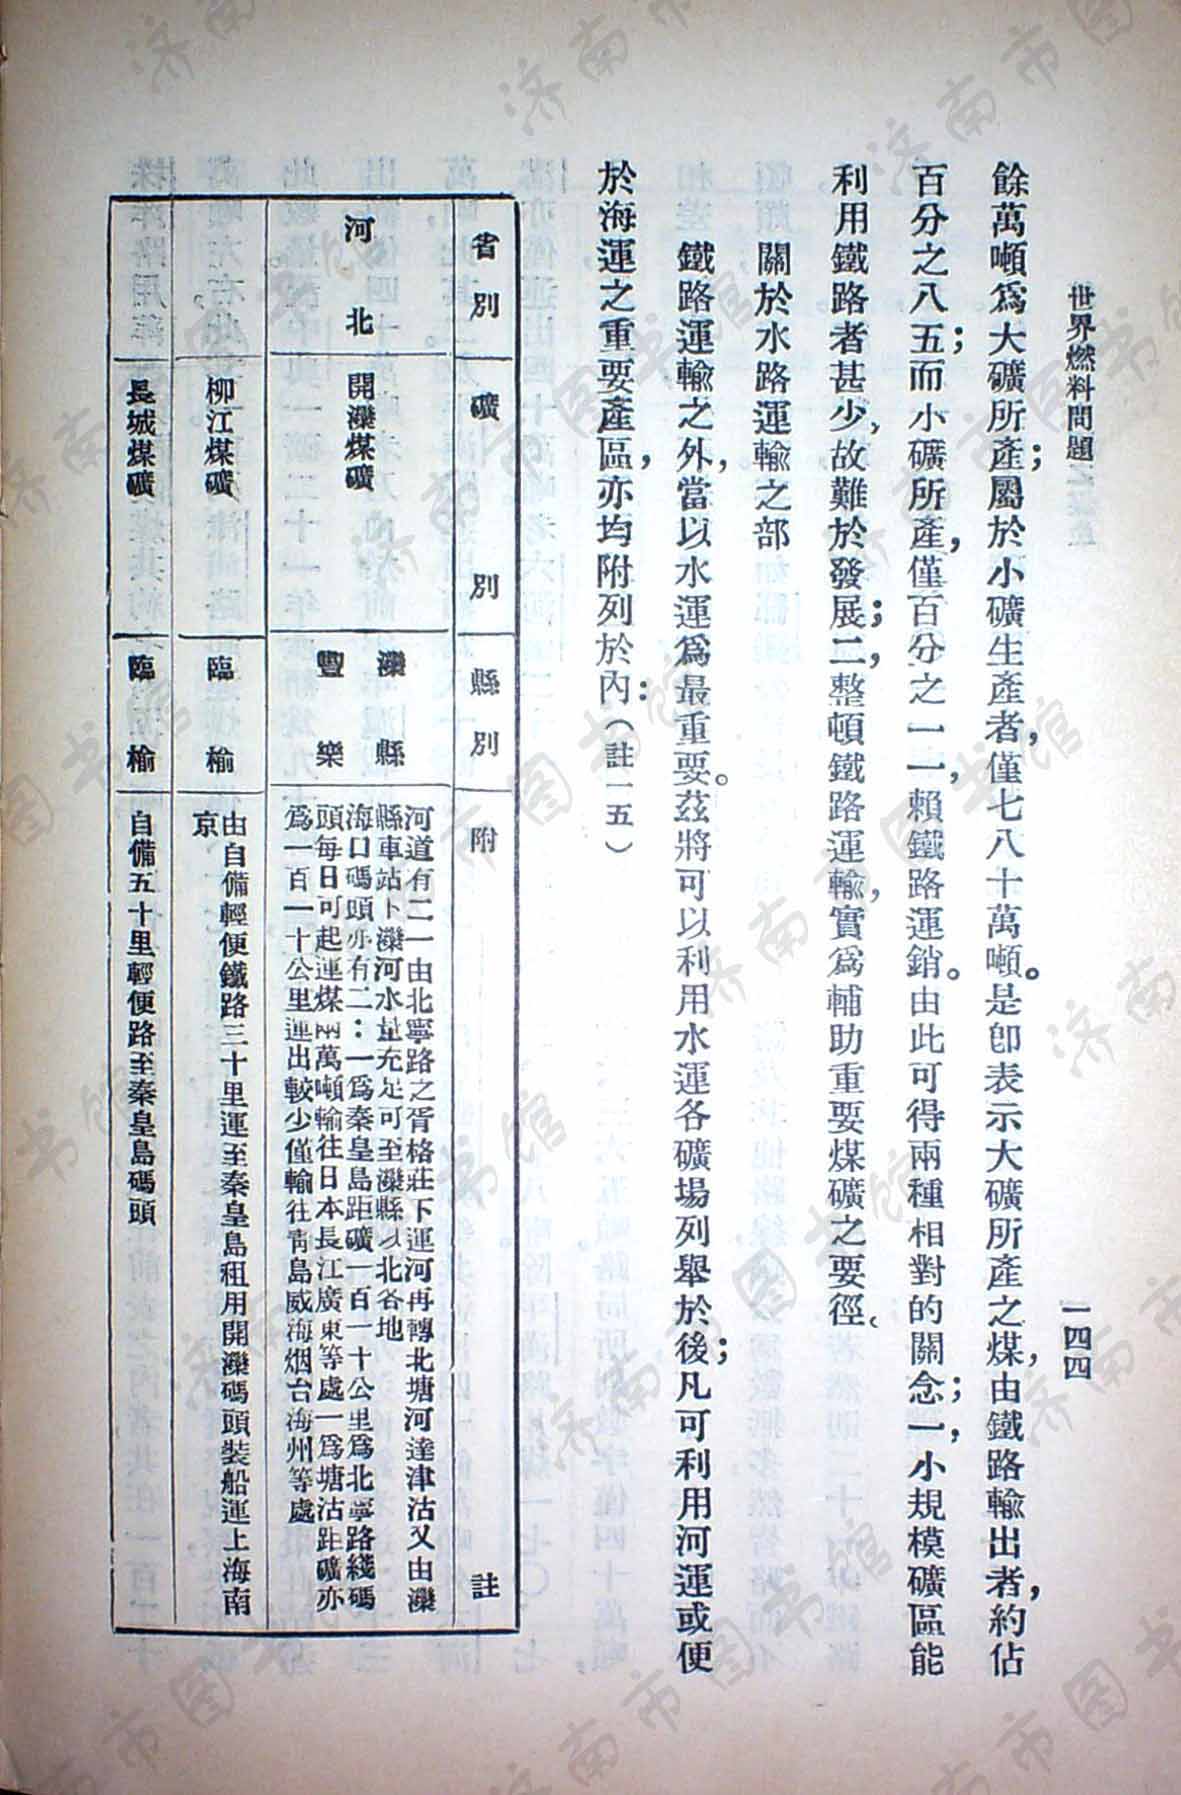 世界燃料問題
一四四
餘萬噸爲大礦所產；屬於小礦生產者，僅七八十萬噸。是卽表示大礦所產之煤，由鐵路輸出者，約佔
百分之八五；而小礦所產，僅百分之一一，賴鐵路運銷。由此可得兩種相對的關念；一，小規模礦區能
利用鐵路者甚少，故難於發展；二，整頓鐵路運輸，實爲輔助重要煤礦之要徑。
關於水路運輸之部
鐵路運輸之外，當以水運爲最重要。茲將可以利用水運各礦場列舉於後；凡可利用河運或便
於海運之重要產區，亦均附列於內：（註一五）
省別 礦別 縣別 附註
河北
開灤煤礦
灤縣
豐樂
河道有二一由北寧路之胥格莊下運河再轉北塘河達津沽又由灤
縣車站卜灤河水量充足可至灤縣以北各地
海口碼頭亦有二：一爲秦皇島距礦一百一十公里爲北寧路綫碼
頭每日可起運煤兩萬噸輸往日本長江廣東等處一爲塘沽距礦亦
爲一百一十公里運出較少僅輸往靑島威海烟台海州等處
柳江煤礦
臨榆
由自備輕便鐵路三十里運至秦皇島租用開灤碼頭裝船運上海南
京
長城煤礦
臨榆
自備五十里輕便路至秦皇島碼頭
济南市图书馆